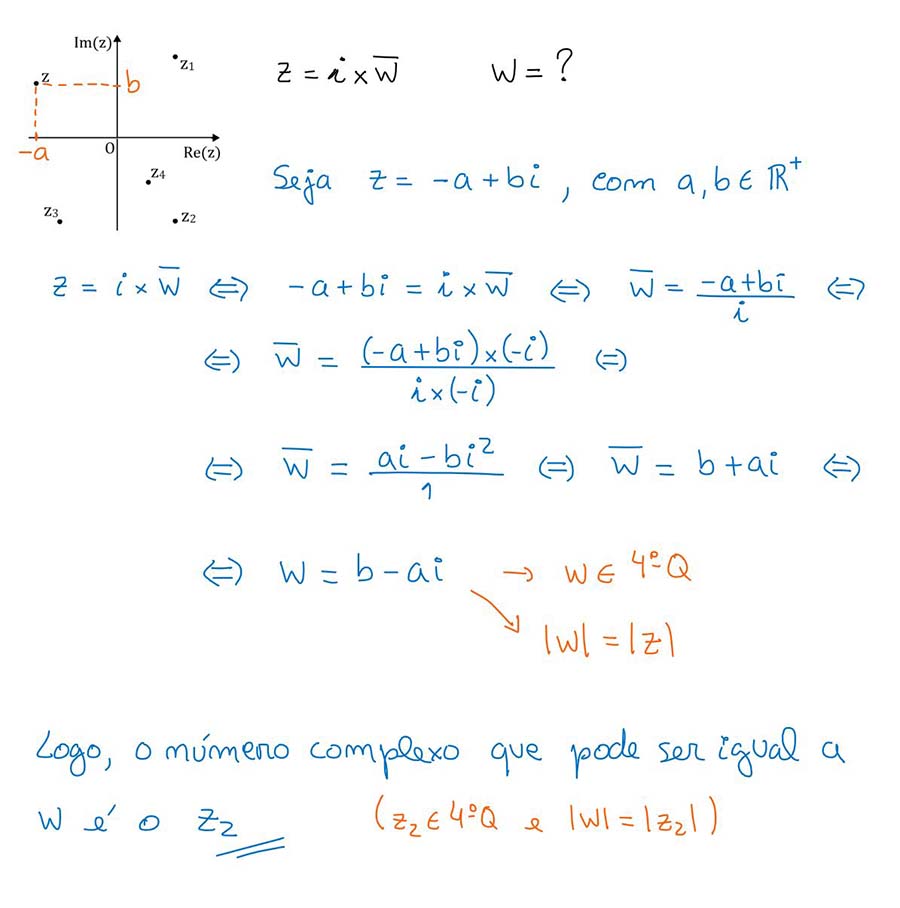 Im(z)
z₁
z
b
z = i × w̅    w = ?
O
Re(z)
-a
z₄
Seja z = -a + bi , com a, b ∈ ℝ⁺
z₃
z₂
z = i × w̅ ⇔ -a + bi = i × w̅ ⇔ w̅ = (-a+bi)/i ⇔
⇔ w̅ = ((-a+bi)×(-i))/(i×(-i)) ⇔
⇔ w̅ = (ai - bi²)/1 ⇔ w̅ = b + ai ⇔
⇔ w = b - ai → w ∈ 4ºQ
|w| = |z|
Logo, o número complexo que pode ser igual a
w é o z₂    (z₂ ∈ 4ºQ e |w| = |z₂|)